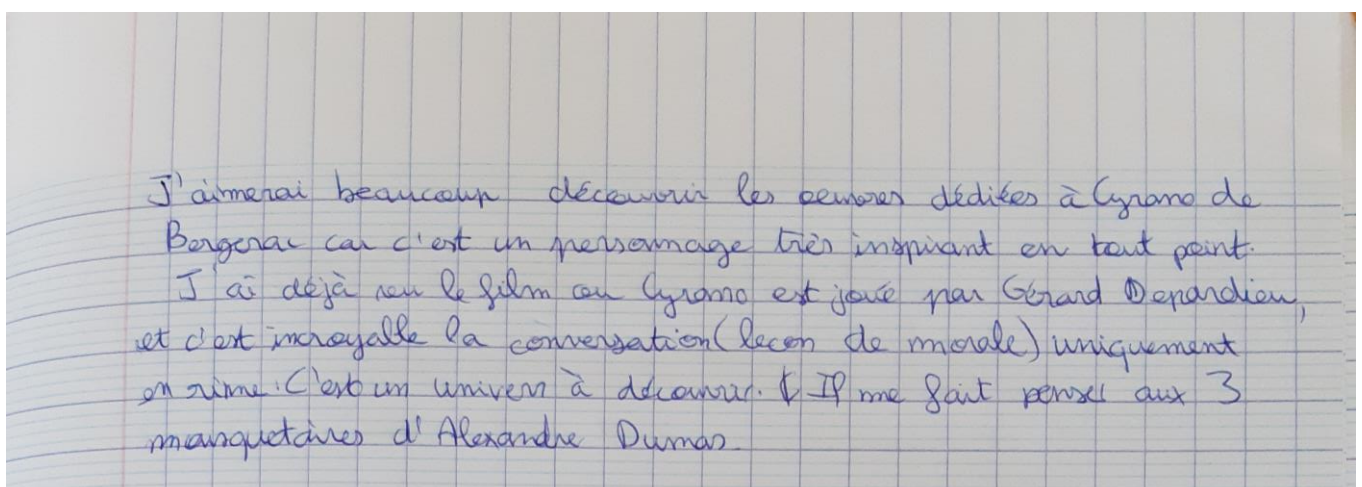 J'aimerai beaucoup découvrir les oeuvres dédiées à Cyrano de
Bergerac car c'est un personnage très inspirant en tout point.
J'ai déjà vu le film ou Cyrano est joué par Gérard Depardieu,
et c'est incroyable la conversation (lecon de morale) uniquement
en rime. C'est un univers à découvrir. Il me fait penser aux 3
mousquetaires d'Alexandre Dumas.